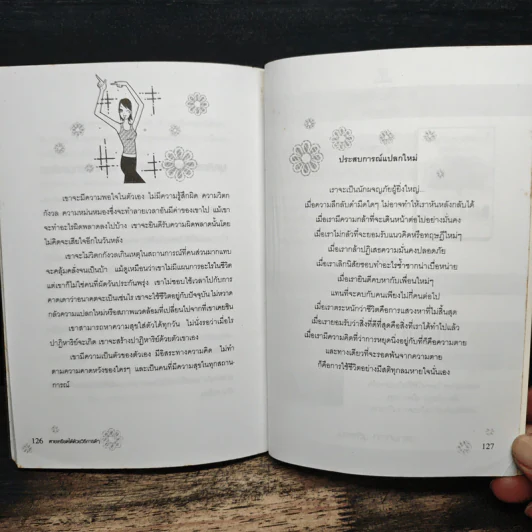 เขาจะมีความพอใจในตัวเอง ไม่มีความรู้สึกผิด ความวิตก
กังวล ความหม่นหมองซึ่งจะทำลายเวลาอันมีค่าของเขาไป แม้เขา
จะทำอะไรผิดพลาดลงไปบ้าง เขาจะยินดีรับความผิดพลาดนั้นโดย
ไม่คิดจะเสียใจอีกในวันหลัง
เขาจะไม่วิตกกังวลเกินเหตุในสถานการณ์ที่คนส่วนมากแทบ
จะคลุ้มคลั่งจนเป็นบ้า แม้ดูเหมือนว่าเขาไม่มีแผนการอะไรในชีวิต
แต่เขาก็ไม่ใช่คนที่มืดวันประกันพรุ่ง เขาไม่ชอบใช้เวลาไปกับการ
คาดเดาว่าอนาคตจะเป็นเช่นไร เขาจะใช้ชีวิตอยู่กับปัจจุบัน ไม่หวาด
กลัวความแปลกใหม่หรือสภาพแวดล้อมที่เปลี่ยนไปจากที่เขาเคยชิน
เขาสามารถหาความสุขใส่ตัวได้ทุกวัน ไม่นั่งรอว่าเมื่อไร
ปาฏิหาริย์จะเกิด เขาจะสร้างปาฏิหาริย์ด้วยตัวเขาเอง
เขามีความเป็นตัวของตัวเอง มีอิสระทางความคิด ไม่ทำ
ตามความคาดหวังของใครๆ และเป็นคนที่มีความสุขในทุกสถาน
การณ์
126 คลายเครียดได้ด้วยวิธีการเด็ดๆ
ประสบการณ์แปลกใหม่
เราจะเป็นนักผจญภัยผู้ยิ่งใหญ่...
เมื่อความลึกลับดำมืดใดๆ ไม่อาจทำให้เราหันหลังกลับได้
เมื่อเรามีความกล้าที่จะเดินหน้าต่อไปอย่างมั่นคง
เมื่อเราไม่กลัวที่จะยอมรับแนวคิดหรือทฤษฎีใหม่ๆ
เมื่อเรากล้าปฏิเสธความมั่นคงปลอดภัย
เมื่อเราเลิกนิสัยชอบทำอะไรซ้ำซากน่าเบื่อหน่าย
เมื่อเรายินดีคบหากับเพื่อนใหม่ๆ
แทนที่จะคบกับคนเพียงไม่กี่คนต่อไป
เมื่อเราตระหนักว่าชีวิตคือการแสวงหาที่ไม่สิ้นสุด
เมื่อเรายอมรับว่าสิ่งที่ดีที่สุดคือสิ่งที่เราได้ทำไปแล้ว
เมื่อเรามีความคิดที่ว่าการหยุดนิ่งอยู่กับที่ก็คือความตาย
และทางเดียวที่จะรอดพ้นจากความตาย
ก็คือการใช้ชีวิตอย่างมีสติทุกลมหายใจนั่นเอง
127